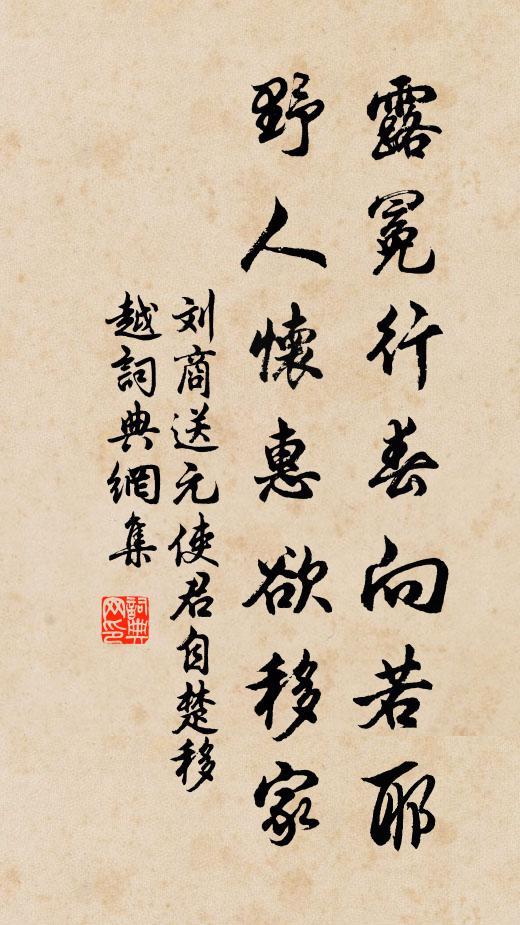 露冕行春向若耶
野人懷惠欲移家
刘商送元使君自楚移
越詞典網集
詞典
网印